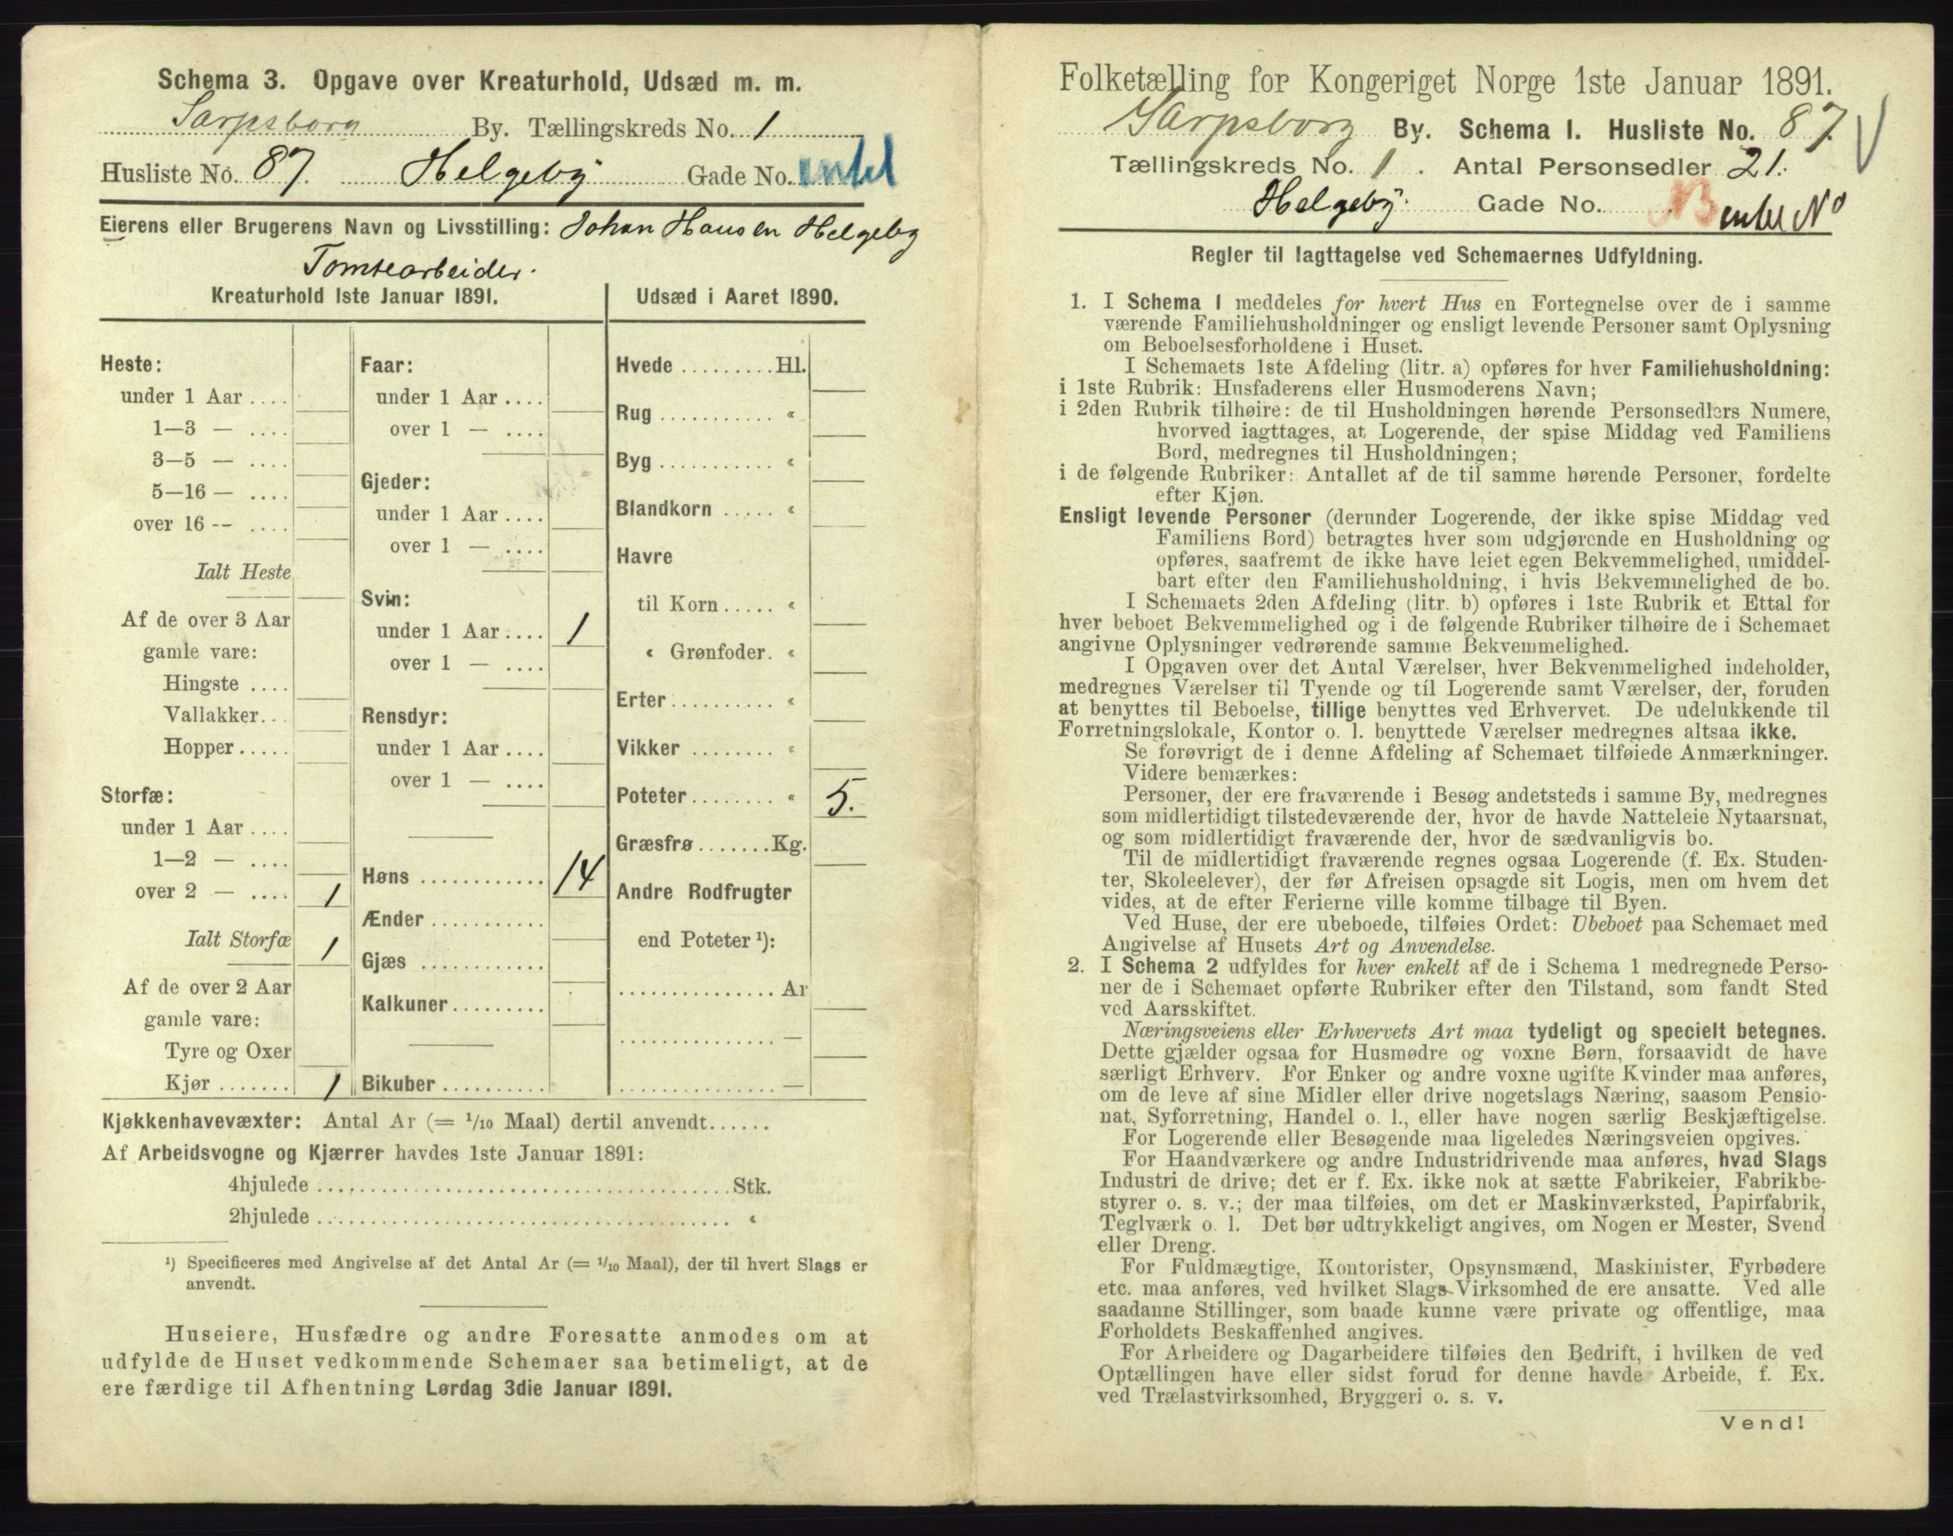 Schema 3. Opgave over Kreaturhold, Udsæd m. m.
Sarpsborg By. Tællingskreds No. 1
Husliste No. 87. Helgeby Gade No.
Eierens eller Brugerens Navn og Livsstilling: Johan Hansen Helgeby
Tomtearbeider.
Kreaturhold 1ste Januar 1891.
Heste:
under 1 Aar ....
1—3 — ....
3—5 — ....
5—16 — ....
over 16 -- ....
Ialt Heste
Af de over 3 Aar
gamle vare:
Hingste ....
Vallakker...
Hopper.....
Storfæ:
under 1 Aar ....
1—2 — ....
over 2 — .... 1
Ialt Storfæ 1
Af de over 2 Aar
gamle vare:
Tyre og Oxer
Kjør ....... 1
Faar:
under 1 Aar ....
over 1 — ....
Gjeder:
under 1 Aar ....
over 1 — ....
Svin:
under 1 Aar .... 1
over 1 — ....
Rensdyr:
under 1 Aar ....
over 1 — ....
Høns ............ 14
Ænder ............
Gjæs ............
Kalkuner.........
Bikuber ..........
Udsæd i Aaret 1890.
Hvede ......... Hl.
Rug ........... «
Byg ........... «
Blandkorn ..... «
Havre
til Korn ..... «
« Grønfoder. «
Erter.......... «
Vikker ........ «
Poteter........ « 5.
Græsfrø ....... Kg.
Andre Rodfrugter
end Poteter ¹):
............... Ar
............... —
............... —
Kjøkkenhavevæxter: Antal Ar (= 1/10 Maal) dertil anvendt......
Af Arbeidsvogne og Kjærrer havdes 1ste Januar 1891:
4hjulede ........................................ Stk.
2hjulede ........................................ «
¹) Specificeres med Angivelse af det Antal Ar (= 1/10 Maal), der til hvert Slags er
anvendt.
Huseiere, Husfædre og andre Foresatte anmodes om at
udfylde de Huset vedkommende Schemaer saa betimeligt, at de
ere færdige til Afhentning Lørdag 3die Januar 1891.
Folketælling for Kongeriget Norge 1ste Januar 1891.
Sarpsborg By. Schema 1. Husliste No. 87.
Tællingskreds No. 1. Antal Personsedler 21.
Helgeby. Gade No. No
Regler til Iagttagelse ved Schemaernes Udfyldning.
1. I Schema 1 meddeles for hvert Hus en Fortegnelse over de i samme
værende Familiehusholdninger og ensligt levende Personer samt Oplysning
om Beboelsesforholdene i Huset.
I Schemaets 1ste Afdeling (litr. a) opføres for hver Familiehusholdning:
i 1ste Rubrik: Husfaderens eller Husmoderens Navn;
i 2den Rubrik tilhøire: de til Husholdningen hørende Personsedlers Numere,
hvorved iagttages, at Logerende, der spise Middag ved Familiens
Bord, medregnes til Husholdningen;
i de følgende Rubriker: Antallet af de til samme hørende Personer, fordelte
efter Kjøn.
Ensligt levende Personer (derunder Logerende, der ikke spise Middag ved
Familiens Bord) betragtes hver som udgjørende en Husholdning og
opføres, saafremt de ikke have leiet egen Bekvemmelighed, umiddel-
bart efter den Familiehusholdning, i hvis Bekvemmelighed de bo.
I Schemaets 2den Afdeling (litr. b) opføres i 1ste Rubrik et Ettal for
hver beboet Bekvemmelighed og i de følgende Rubriker tilhøire de i Schemaet
angivne Oplysninger vedrørende samme Bekvemmelighed.
I Opgaven over det Antal Værelser, hver Bekvemmelighed indeholder,
medregnes Værelser til Tyende og til Logerende samt Værelser, der, foruden
at benyttes til Beboelse, tillige benyttes ved Erhvervet. De udelukkende til
Forretningslokale, Kontor o. l. benyttede Værelser medregnes altsaa ikke.
Se forøvrigt de i denne Afdeling af Schemaet tilføiede Anmærkninger.
Videre bemærkes:
Personer, der ere fraværende i Besøg andetsteds i samme By, medregnes
som midlertidigt tilstedeværende der, hvor de havde Natteleie Nytaarsnat,
og som midlertidigt fraværende der, hvor de sædvanligvis bo.
Til de midlertidigt fraværende regnes ogsaa Logerende (f. Ex. Studen-
ter, Skoleelever), der før Afreisen opsagde sit Logis, men om hvem det
vides, at de efter Ferierne ville komme tilbage til Byen.
Ved Huse, der ere ubeboede, tilføies Ordet: Ubeboet paa Schemaet med
Angivelse af Husets Art og Anvendelse.
2. I Schema 2 udfyldes for hver enkelt af de i Schema 1 medregnede Perso-
ner de i Schemaet opførte Rubriker efter den Tilstand, som fandt Sted
ved Aarsskiftet.
Næringsveiens eller Erhvervets Art maa tydeligt og specielt betegnes.
Dette gjælder ogsaa for Husmødre og voxne Børn, forsaavidt de have
særligt Erhverv. For Enker og andre voxne ugifte Kvinder maa anføres,
om de leve af sine Midler eller drive nogetslags Næring, saasom Pensio-
nat, Syforretning, Handel o. l., eller have nogen særlig Beskjæftigelse.
For Logerende eller Besøgende maa ligeledes Næringsveien opgives.
For Haandværkere og andre Industridrivende maa anføres, hvad Slags
Industri de drive; det er f. Ex. ikke nok at sætte Fabrikeier, Fabrikbe-
styrer o. s. v.; der maa tilføies, om det er Maskinværksted, Papirfabrik,
Teglværk o. l. Det bør udtrykkeligt angives, om Nogen er Mester, Svend
eller Dreng.
For Fuldmægtige, Kontorister, Opsynsmænd, Maskinister, Fyrbødere
etc. maa anføres, ved hvilket Slags Virksomhed de ere ansatte. Ved alle
saadanne Stillinger, som baade kunne være private og offentlige, maa
Forholdets Beskaffenhed angives.
For Arbeidere og Dagarbeidere tilføies den Bedrift, i hvilken de ved
Optællingen have eller sidst forud for denne havde Arbeide, f. Ex.
ved Trælastvirksomhed, Bryggeri o. s. v.
Vend!